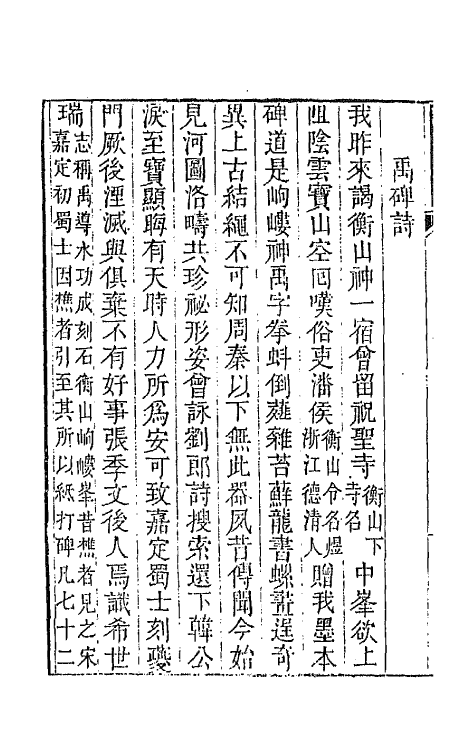 禹碑詩
我昨來謁衡山神一宿曾留祝聖寺衡山下寺名中峯欲上
阻陰雲寶山空囘嘆俗吏潘侯衡山令名煜浙江德清人贈我墨本
碑道是岣嶁神禹字拳蚪倒薤雜苔蘚龍書螺逞奇
異上古結繩不可知周秦以下無此器夙昔傳聞今始
見河圖洛疇共珍祕形姿曾詠劉郎詩搜索還下韓公
淚至寶顯晦有天時人力所爲安可致嘉定蜀士刻夔
門厥後湮滅與俱棄不有好事張季文後人焉識希世
瑞志稱禹導水功成刻石衡山岣嶁峯昔樵者見之宋嘉定初蜀士因樵者引至其所以紙打碑凡七十二